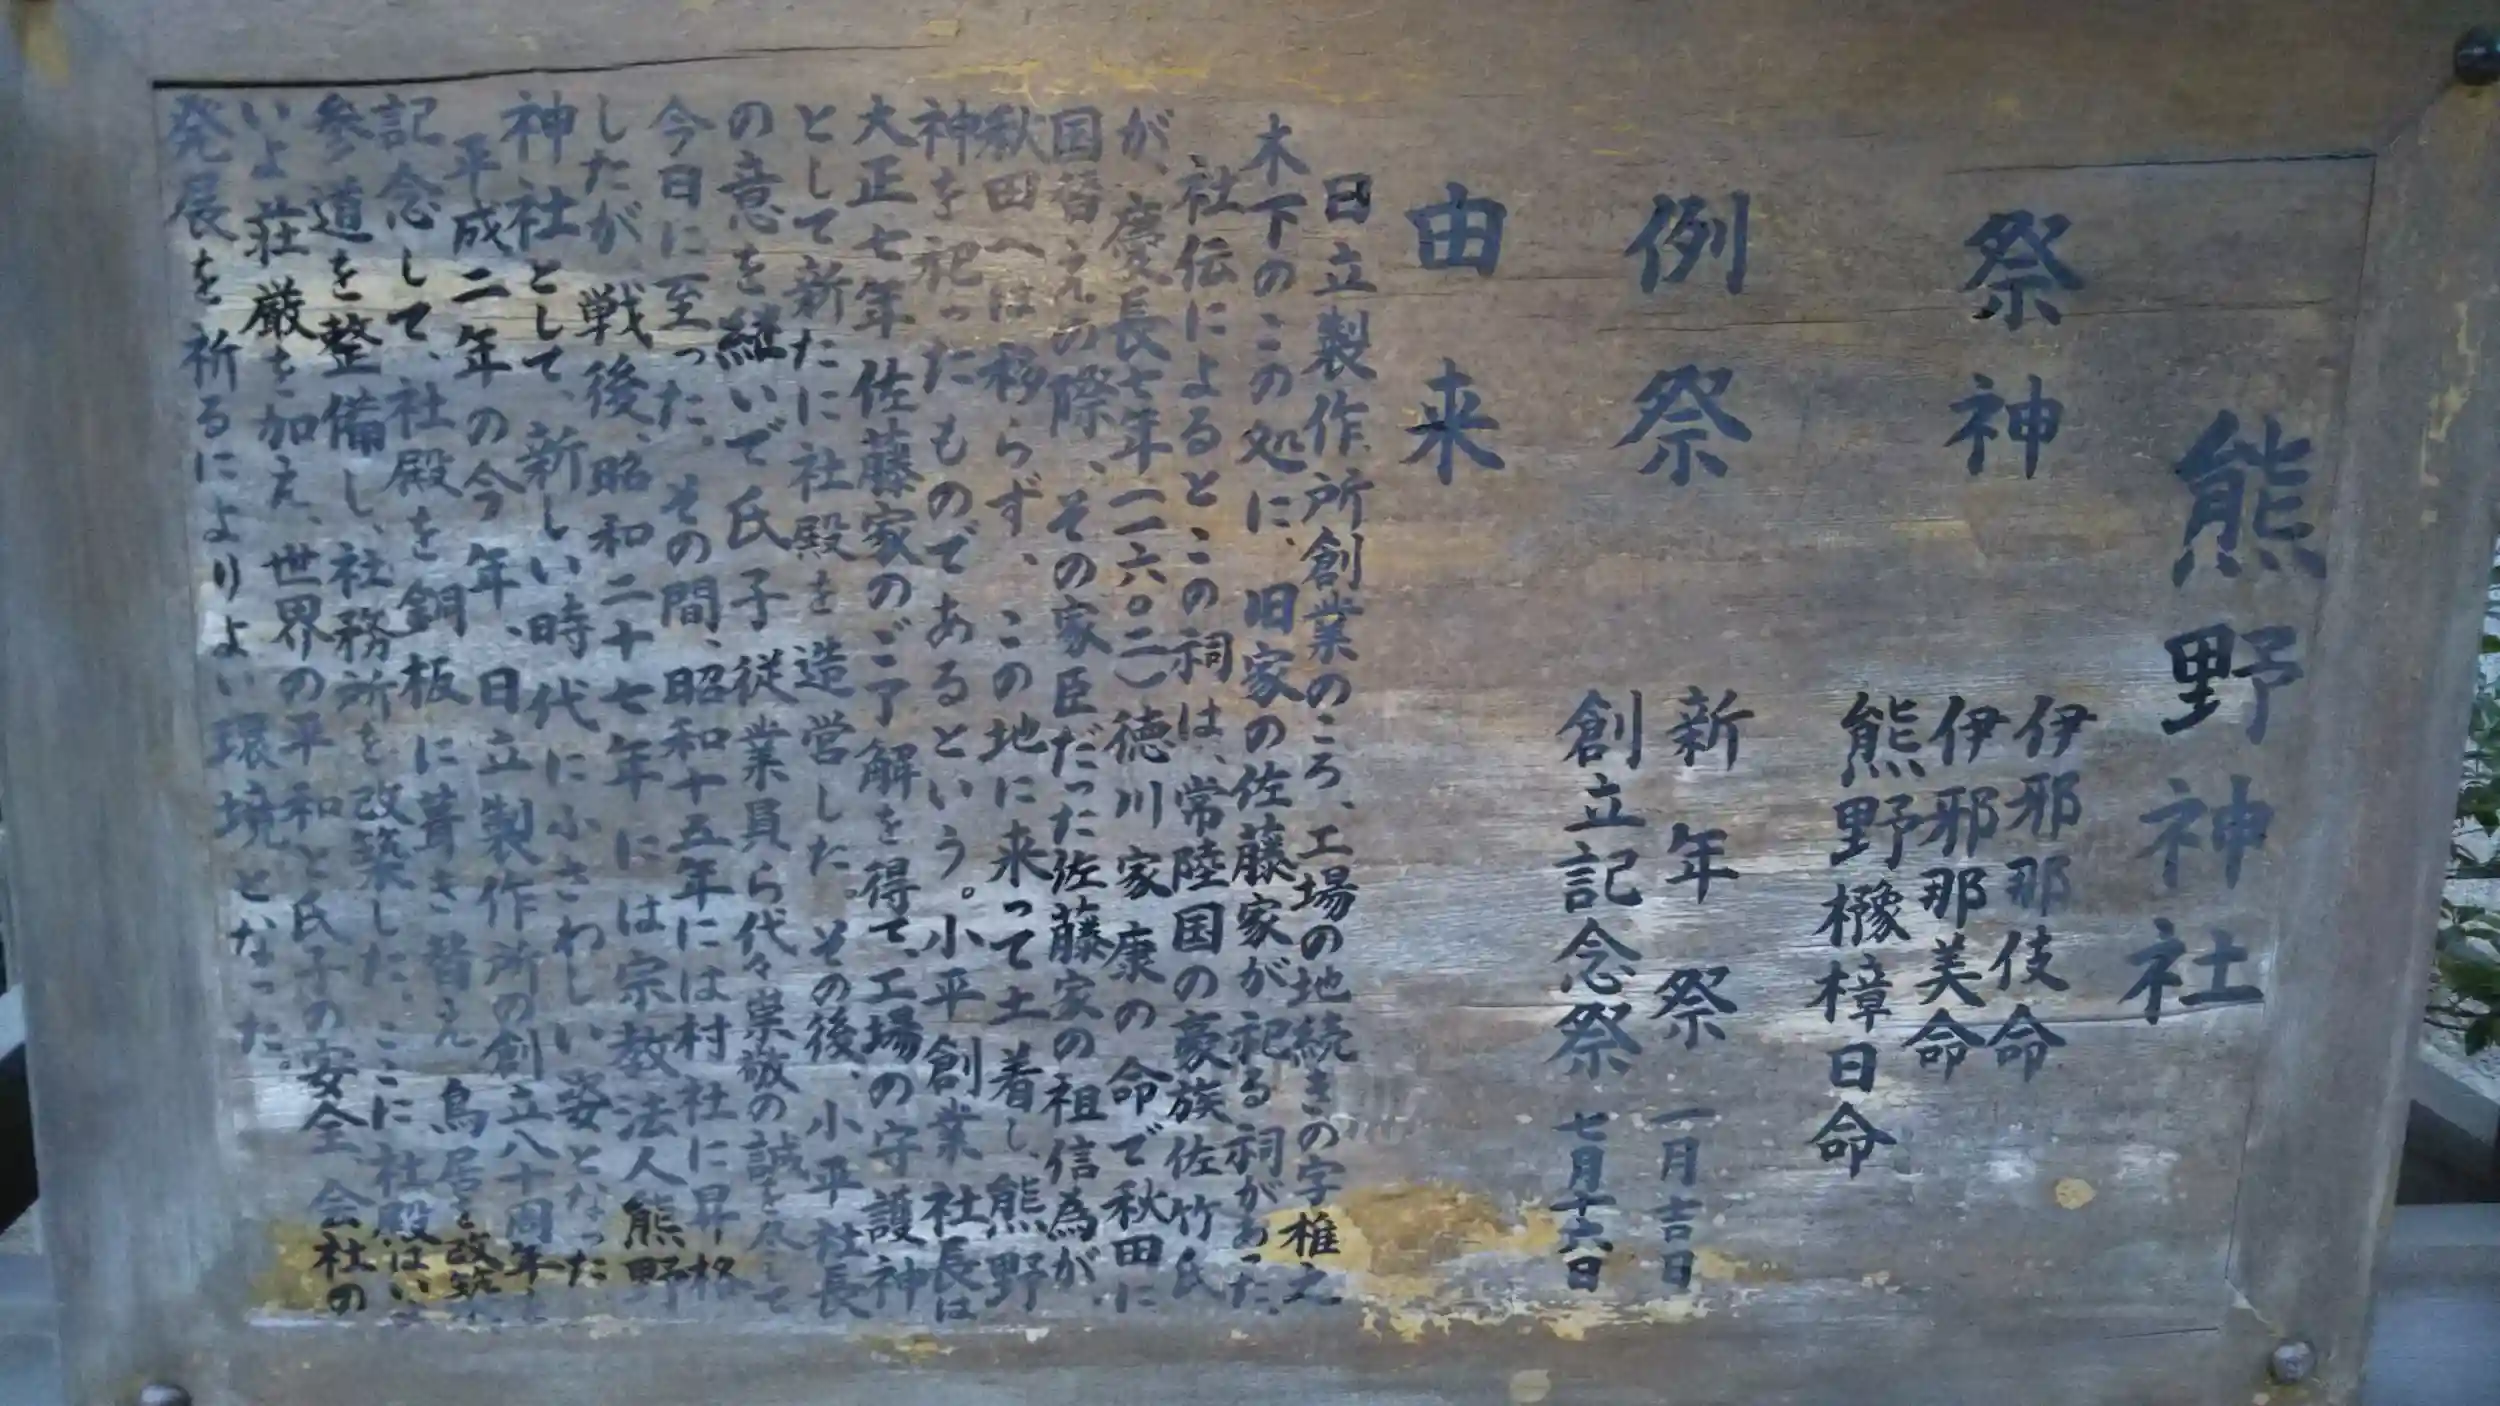 熊野神社
祭神
伊邪那伎命
伊邪那美命
熊野櫲樟日命
例祭
新年祭 一月吉日
創立記念祭 七月十六日
由来
日立製作所創業のころ、工場の地続きの字椎之
木下のこの処に、旧家の佐藤家が祀る祠があった、
社伝によるとこの祠は、常陸国の豪族佐竹氏
が、慶長七年（一六〇二）徳川家康の命で秋田に
国替えの際、その家臣だった佐藤家の祖信為が、
秋田へは移らず、この地に来って土着し、熊野
神を祀ったものであるという。小平創業社長は
大正七年佐藤家のご了解を得て、工場の守護神
として新たに社殿を造営した。その後、小平社長
の意を継いで氏子従業員ら代々崇敬の誠を尽して
今日に至った、その間、昭和十五年には村社に昇格
したが、戦後、昭和二十七年には宗教法人熊野
神社として、新しい時代にふさわしい姿となった
平成二年の今年、日立製作所の創立八十周年を
記念して、社殿を銅板に葺き替え鳥居を改築
参道を整備し、社務所を改築した、ここに社殿はいよ
いよ荘厳を加え、世界の平和と氏子の安全、会社の
発展を祈るによりよい環境となった。